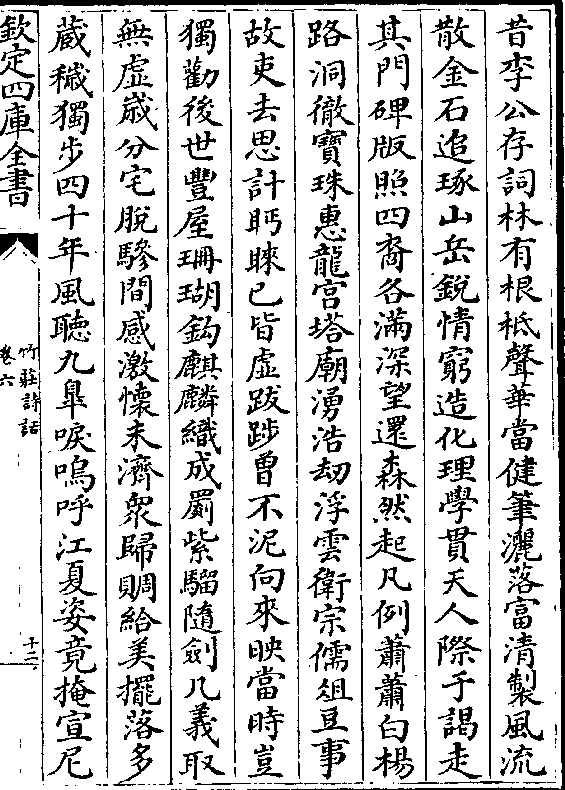 昔李公存詞林有根柢聲華當健筆灑落富清製風流
散金石追琢山岳銳情窮造化理學貫天人際于謁走
其門碑版照四裔各滿深望還森然起凡例蕭蕭白楊
路洞徹寶珠惠龍宫塔廟湧浩劫浮雲衛宗儒俎豆事
故吏去思計眄睞已皆虛跋踄曾不泥向來映當時豈
獨勸後世豐屋珊瑚鈎麒麟織成罽紫騮隨劍几義取
無虛歲分宅脫驂間感激懷未濟衆歸賙給美擺落多
蔵穢獨步四十年風聽九臯唳嗚呼江夏姿竟掩宣尼
欽定四庫全書
竹莊詩話
卷六
十二